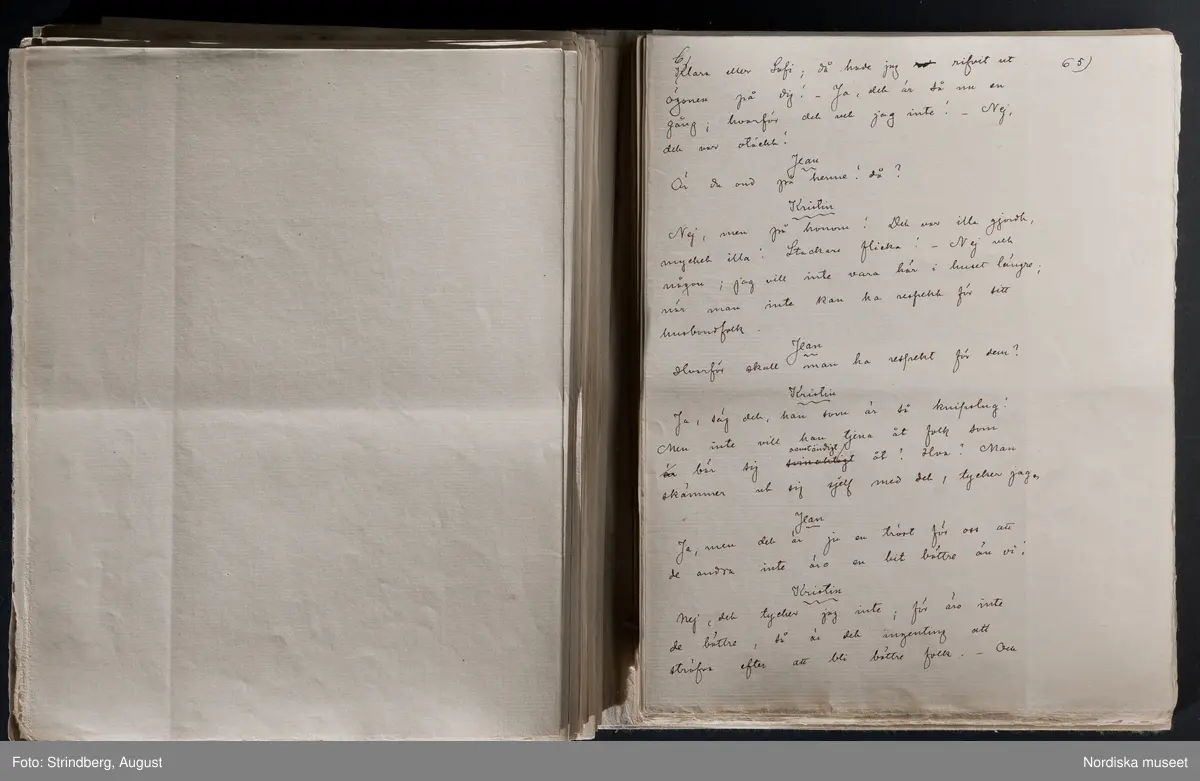 65)
Klara eller Sofi; då hade jag rifvit ut
ögonen på dig! – Ja, det är så nu en
gång; hvarför det vet jag inte! – Nej,
det var otäckt!
Jean
Är du ond på henne! då?
Kristin
Nej, men på honom! Det var illa gjordt,
mycket illa! Stackars flicka! – Nej vet
någon; jag vill inte vara här i huset längre;
när man inte kan ha respekt för sitt
husbondfolk.
Jean
Hvarför skall man ha respekt för dem?
Kristin
Ja, säg det, han som är så knipslug!
Men inte vill han tjena åt folk som
bär sig oanständigt åt! Hva? Man
skämmer ut sig sjelf med det, tycker jag.
Jean
Ja, men det är ju en tröst för oss att
de andra inte äro en bit bättre än vi!
Kristin
Nej, det tycker jag inte; för äro inte
de bättre, så är det ingenting att
sträfva efter att bli bättre folk. – Och
Foto: Strindberg, August
Nordiska museet